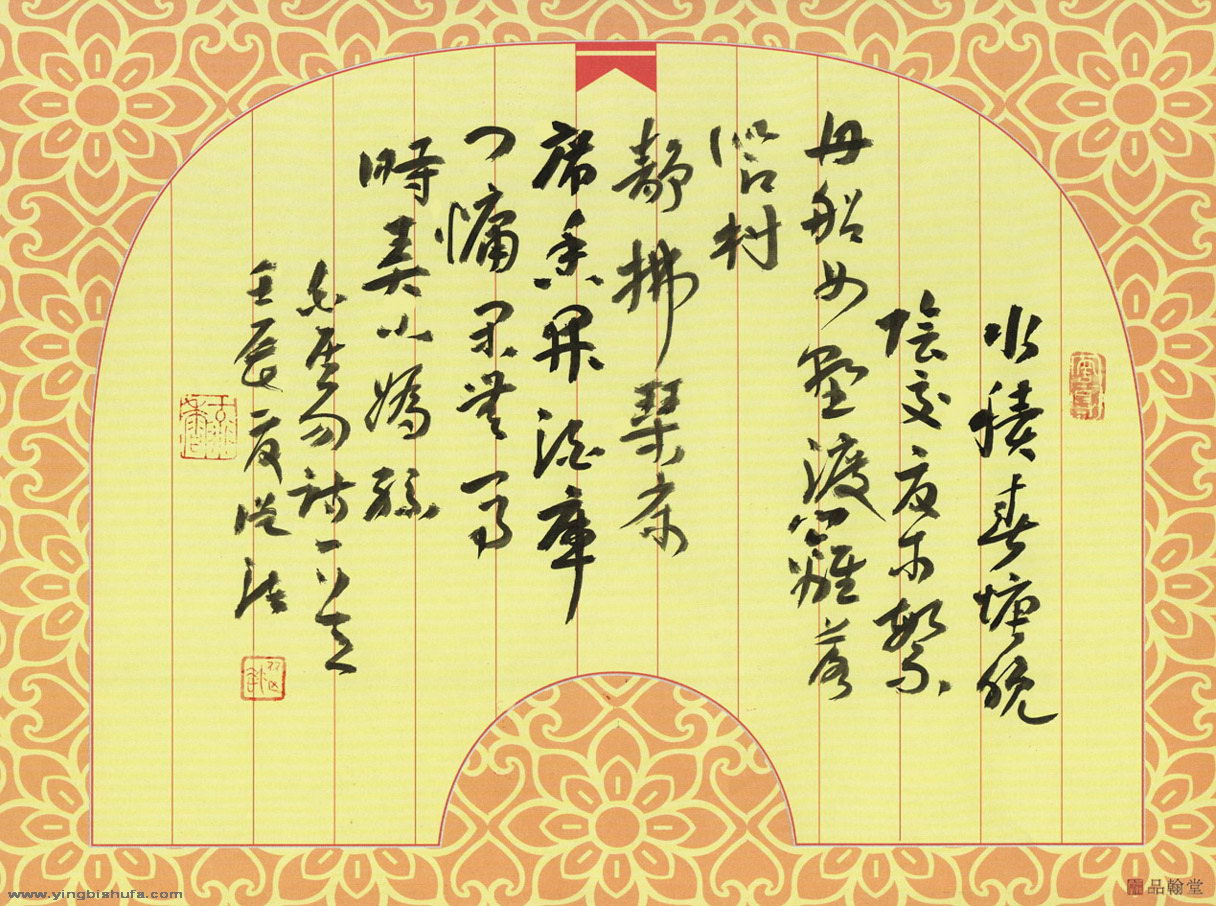 水積春塘晚
陰交夏木繁
舟船如野渡籬落
似江村
靜拂琴床
席香開酒庫
門慵閑無一事
時弄小嬌孫
白居易詩一首
壬辰夏
www.yingbishufa.com
品翰堂